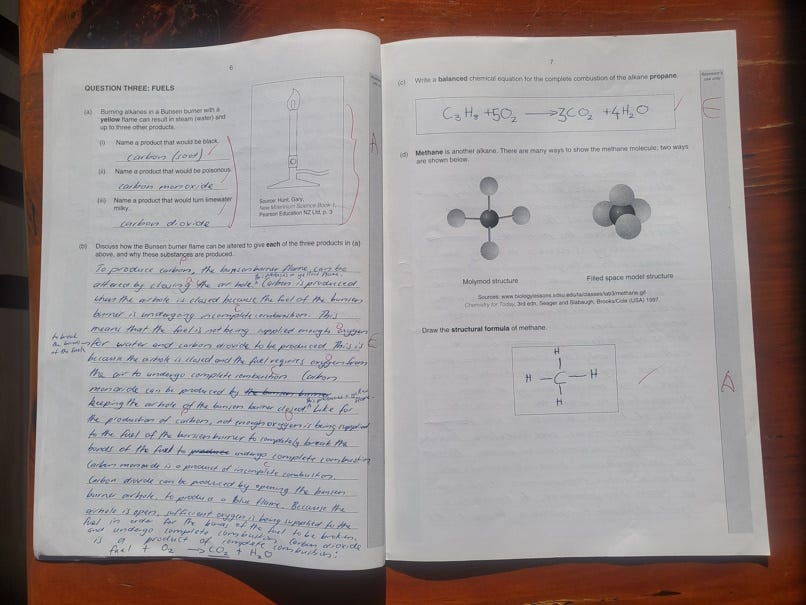 6
QUESTION THREE: FUELS
(a) Burning alkanes in a Bunsen burner with a
yellow flame can result in steam (water) and
up to three other products.
(i) Name a product that would be black.
carbon (soot)
(ii) Name a product that would be poisonous
carbon monoxide
(iii) Name a product that would turn limewater
milky.
carbon dioxide
Source: Hunt, Gary,
New Millennium Science Book 1,
Pearson Education NZ Ltd, p. 3
A
(b) Discuss how the Bunsen burner flame can be altered to give each of the three products in (a)
above, and why these substances are produced.
To produce carbon, the bunsen burner flame can be
this produces a yellow flame.
altered by closing the air hole. Carbon is produced
when the airhole is closed because the fuel of the bunsen
burner is undergoing incomplete combustion. This
means that the fuel is not being supplied enough oxygen
to break
the bonds
of the fuel
for water and carbon dioxide to be produced. This is
because the airhole is closed and the fuel requires oxygen from
the air to undergo complete combustion. Carbon
monoxide can be produced by the bunsen burner
keeping the airhole of the bunsen burner closed. Like for
the production of carbon, not enough oxygen is being supplied
to the fuel of the bunsen burner to completely break the
bonds of the fuel to undergo complete combustion
Carbon monoxide is a product of incomplete combustion.
Carbon dioxide can be produced by opening the bunsen
burner airhole, to produce a blue flame. Because the
airhole is open, sufficient oxygen is being supplied to the
fuel in order for the bonds of the fuel to be broken
and undergo complete combustion. Carbon dioxide
is a product of complete combustion:
fuel + O₂ → CO₂ + H₂O
E
7
(c) Write a balanced chemical equation for the complete combustion of the alkane propane.
C₃H₈ + 5O₂ → 3CO₂ + 4H₂O
E
(d) Methane is another alkane. There are many ways to show the methane molecule; two ways
are shown below.
Molymod structure
Filled space model structure
Sources: www.biologylessons.sdsu.edu/ta/classes/lab3/methane.gif
Chemistry for Today, 3rd edn, Seager and Slabaugh, Brooks/Cole (USA) 1997.
Draw the structural formula of methane.
H
H – C – H
H
A